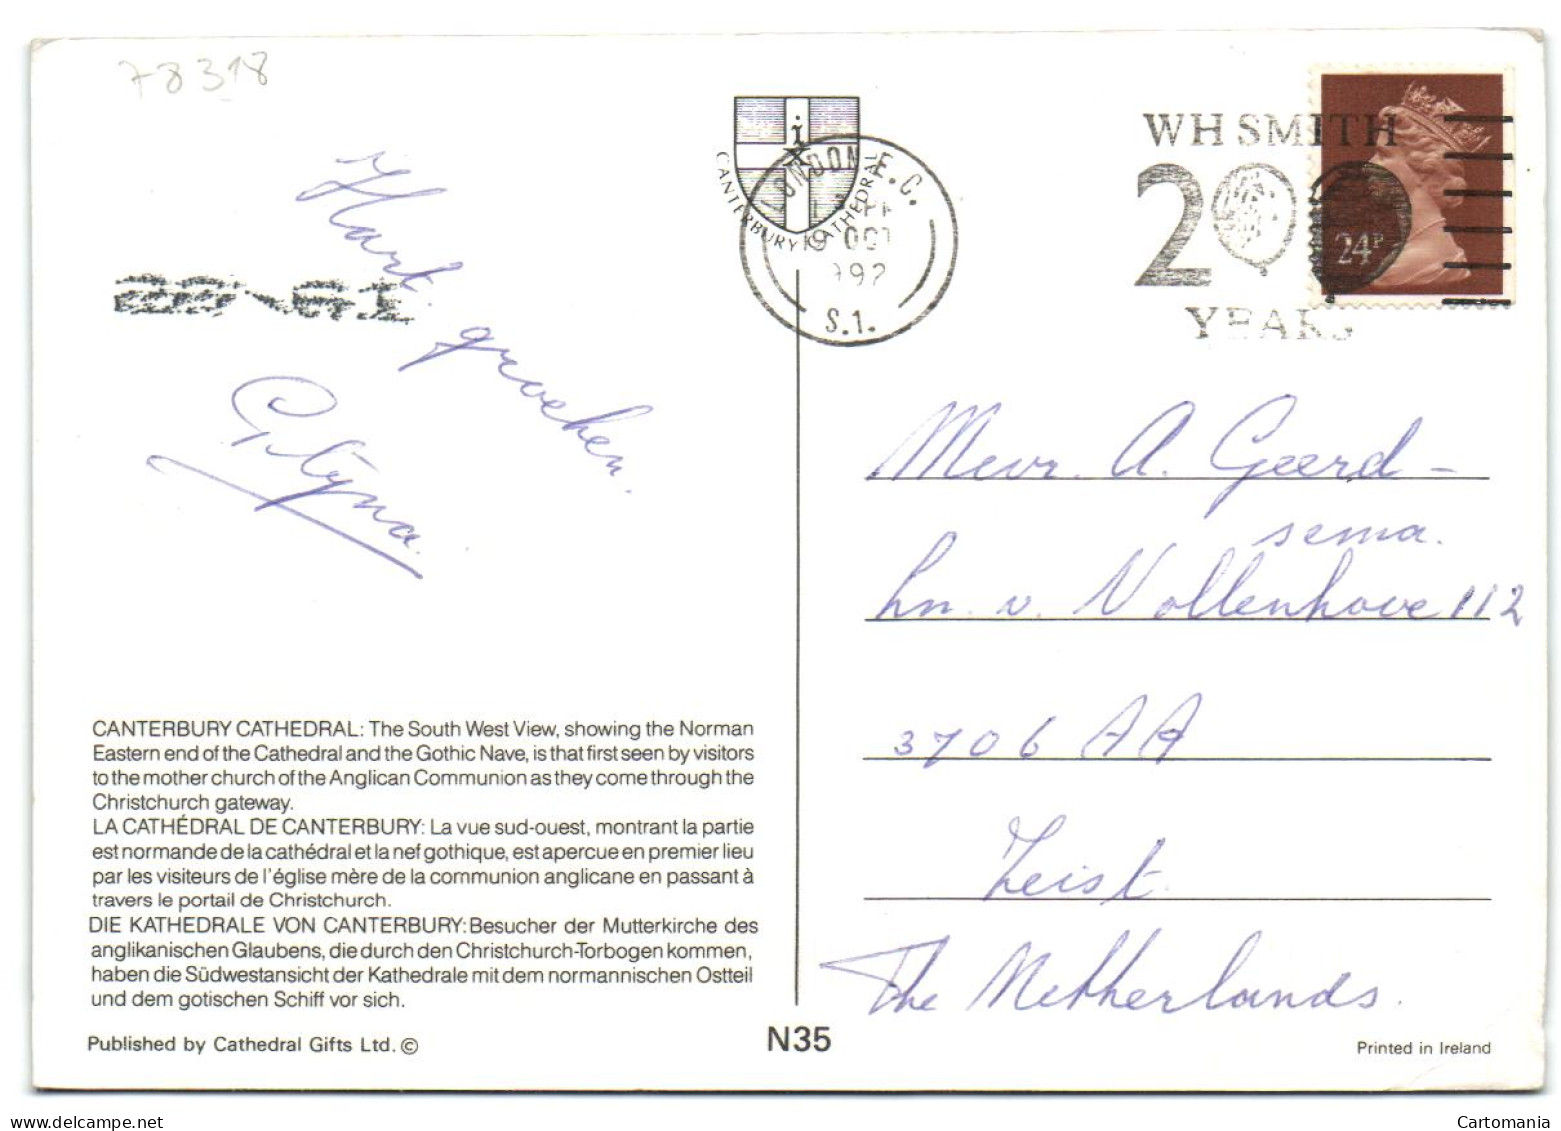 78318
CANTERBURY CATHEDRAL
LONDON E.C.
19 OCT
1992
S.1.
WH SMITH
200
YEARS
24P
Hart.
groeken.
Mevr. A. Geerd-
sema.
Ln. v. Vollenhove 112
3706 AA
Zeist
The Netherlands.
CANTERBURY CATHEDRAL: The South West View, showing the Norman
Eastern end of the Cathedral and the Gothic Nave, is that first seen by visitors
to the mother church of the Anglican Communion as they come through the
Christchurch gateway.
LA CATHÉDRAL DE CANTERBURY: La vue sud-ouest, montrant la partie
est normande de la cathédral et la nef gothique, est apercue en premier lieu
par les visiteurs de l'église mère de la communion anglicane en passant à
travers le portail de Christchurch.
DIE KATHEDRALE VON CANTERBURY: Besucher der Mutterkirche des
anglikanischen Glaubens, die durch den Christchurch-Torbogen kommen,
haben die Südwestansicht der Kathedrale mit dem normannischen Ostteil
und dem gotischen Schiff vor sich.
Published by Cathedral Gifts Ltd. ©
N35
Printed in Ireland
Cartomania